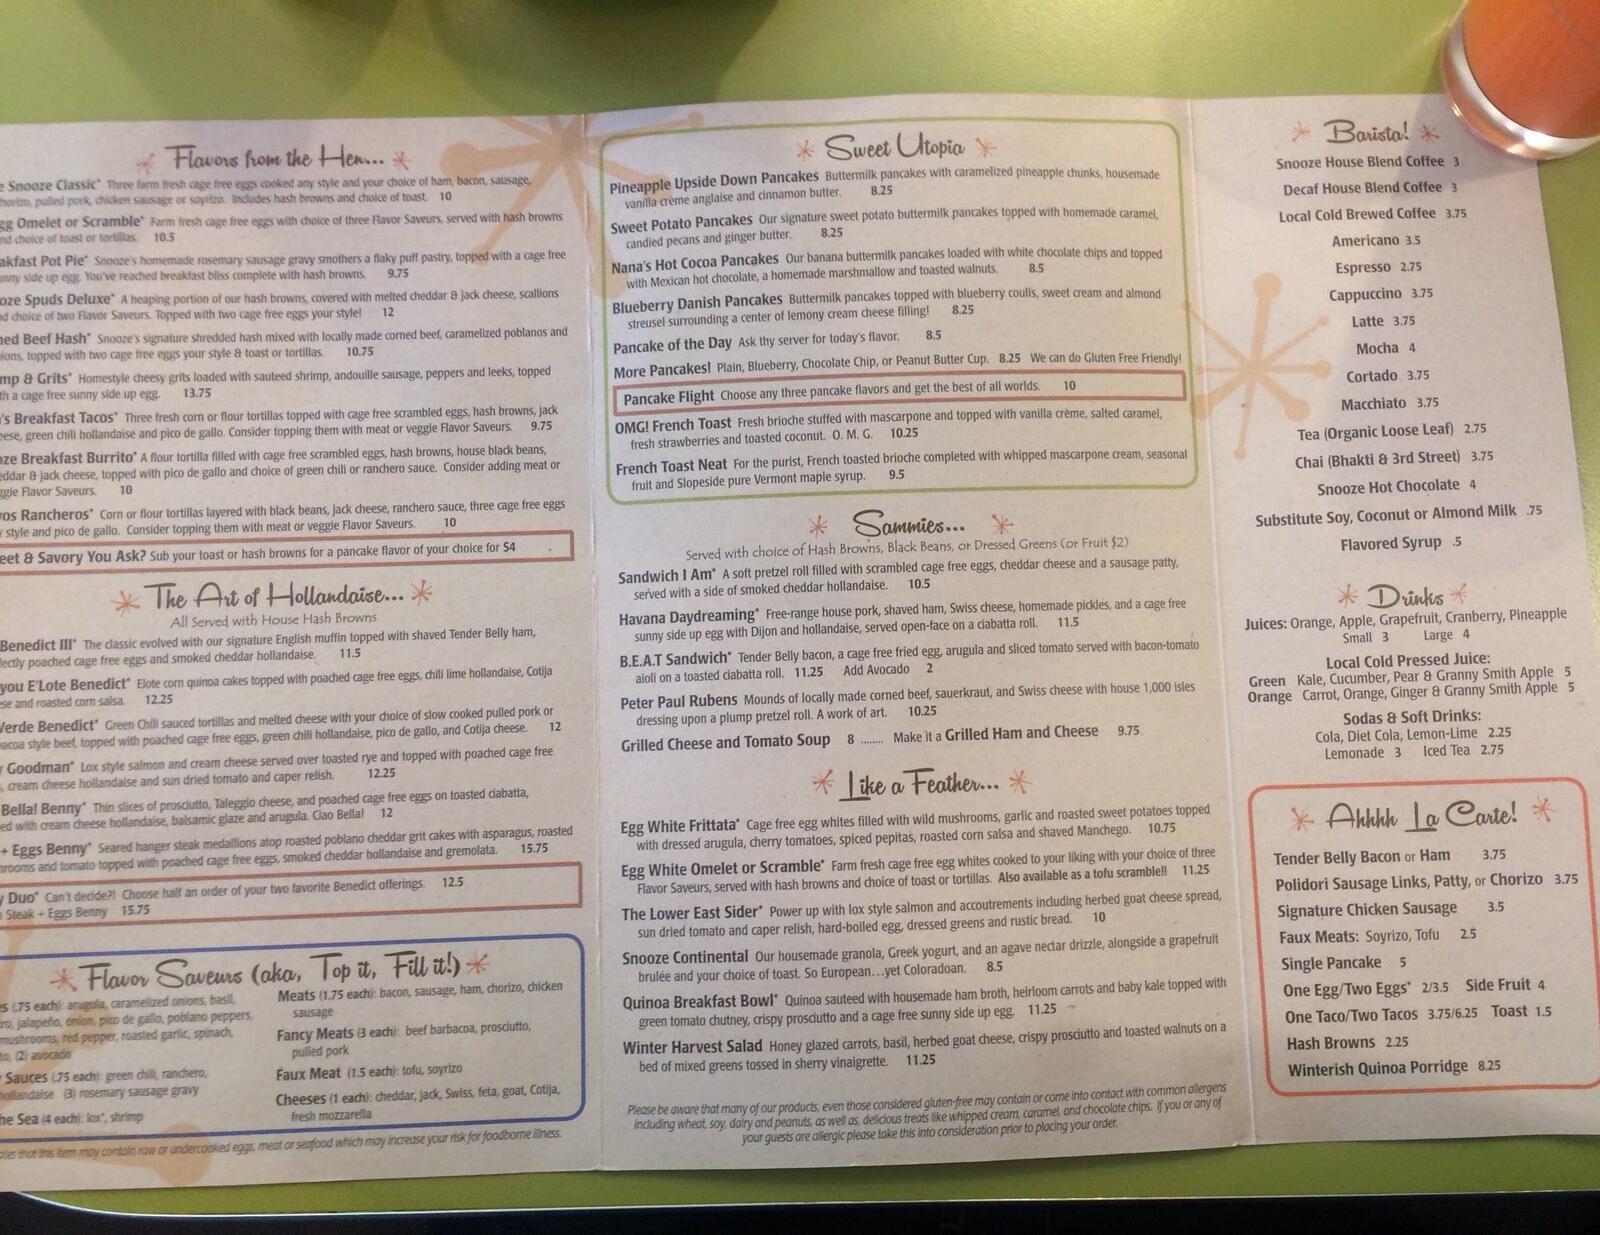 Flavors from the Hen...
Snooze Classic* Three farm fresh cage free eggs cooked any style and your choice of ham, bacon, sausage,
pulled pork, chicken sausage or soyrizo. Includes hash browns and choice of toast. 10
Omelet or Scramble* Farm fresh cage free eggs with choice of three Flavor Saveurs, served with hash browns
choice of toast or tortillas. 10.5
Pot Pie* Snooze's homemade rosemary sausage gravy smothers a flaky puff pastry, topped with a cage free
side up egg. You've reached breakfast bliss complete with hash browns. 9.75
Spuds Deluxe* A heaping portion of our hash browns, covered with melted cheddar & jack cheese, scallions
choice of two Flavor Saveurs. Topped with two cage free eggs your style! 12
Beef Hash* Snooze's signature shredded hash mixed with locally made corned beef, caramelized poblanos and
topped with two cage free eggs your style & toast or tortillas. 10.75
& Grits* Homestyle cheesy grits loaded with sauteed shrimp, andouille sausage, peppers and leeks, topped
a cage free sunny side up egg. 13.75
Breakfast Tacos* Three fresh corn or flour tortillas topped with cage free scrambled eggs, hash browns, jack
green chili hollandaise and pico de gallo. Consider topping them with meat or veggie Flavor Saveurs. 9.75
Breakfast Burrito* A flour tortilla filled with cage free scrambled eggs, hash browns, house black beans,
& jack cheese, topped with pico de gallo and choice of green chili or ranchero sauce. Consider adding meat or
Flavor Saveurs. 10
Rancheros* Corn or flour tortillas layered with black beans, jack cheese, ranchero sauce, three cage free eggs
style and pico de gallo. Consider topping them with meat or veggie Flavor Saveurs. 10
& Savory You Ask? Sub your toast or hash browns for a pancake flavor of your choice for $4
The Art of Hollandaise...
All Served with House Hash Browns
Benedict III* The classic evolved with our signature English muffin topped with shaved Tender Belly ham,
poached cage free eggs and smoked cheddar hollandaise. 11.5
you E'Lote Benedict* Elote corn quinoa cakes topped with poached cage free eggs, chili lime hollandaise, Cotija
and roasted corn salsa. 12.25
Verde Benedict* Green Chili sauced tortillas and melted cheese with your choice of slow cooked pulled pork or
style beef, topped with poached cage free eggs, green chili hollandaise, pico de gallo, and Cotija cheese. 12
Goodman* Lox style salmon and cream cheese served over toasted rye and topped with poached cage free
cream cheese hollandaise and sun dried tomato and caper relish. 12.25
Bella! Benny* Thin slices of prosciutto, Taleggio cheese, and poached cage free eggs on toasted ciabatta,
with cream cheese hollandaise, balsamic glaze and arugula. Ciao Bella! 12
+ Eggs Benny* Seared hanger steak medallions atop roasted poblano cheddar grit cakes with asparagus, roasted
and tomato topped with poached cage free eggs, smoked cheddar hollandaise and gremolata. 15.75
Duo* Can't decide?! Choose half an order of your two favorite Benedict offerings. 12.5
Steak + Eggs Benny 15.75
Flavor Saveurs (aka, Top it, Fill it!)
(.75 each): arugula, caramelized onions, basil,
jalapeño, onion, pico de gallo, poblano peppers,
mushrooms, red pepper, roasted garlic, spinach,
(2) avocado
Sauces (.75 each): green chili, ranchero,
hollandaise (3) rosemary sausage gravy
Sea (4 each): lox*, shrimp
Meats (1.75 each): bacon, sausage, ham, chorizo, chicken
sausage
Fancy Meats (3 each): beef barbacoa, prosciutto,
pulled pork
Faux Meat (1.5 each): tofu, soyrizo
Cheeses (1 each): cheddar, jack, Swiss, feta, goat, Cotija,
fresh mozzarella
that this item may contain raw or undercooked eggs, meat or seafood which may increase your risk for foodborne illness.
Sweet Utopia
Pineapple Upside Down Pancakes Buttermilk pancakes with caramelized pineapple chunks, housemade
vanilla crème anglaise and cinnamon butter. 8.25
Sweet Potato Pancakes Our signature sweet potato buttermilk pancakes topped with homemade caramel,
candied pecans and ginger butter. 8.25
Nana's Hot Cocoa Pancakes Our banana buttermilk pancakes loaded with white chocolate chips and topped
with Mexican hot chocolate, a homemade marshmallow and toasted walnuts. 8.5
Blueberry Danish Pancakes Buttermilk pancakes topped with blueberry coulis, sweet cream and almond
streusel surrounding a center of lemony cream cheese filling! 8.25
Pancake of the Day Ask thy server for today's flavor. 8.5
More Pancakes! Plain, Blueberry, Chocolate Chip, or Peanut Butter Cup. 8.25 We can do Gluten Free Friendly!
Pancake Flight Choose any three pancake flavors and get the best of all worlds. 10
OMG! French Toast Fresh brioche stuffed with mascarpone and topped with vanilla crème, salted caramel,
fresh strawberries and toasted coconut. O. M. G. 10.25
French Toast Neat For the purist, French toasted brioche completed with whipped mascarpone cream, seasonal
fruit and Slopeside pure Vermont maple syrup. 9.5
Sammies...
Served with choice of Hash Browns, Black Beans, or Dressed Greens (or Fruit $2)
Sandwich I Am* A soft pretzel roll filled with scrambled cage free eggs, cheddar cheese and a sausage patty,
served with a side of smoked cheddar hollandaise. 10.5
Havana Daydreaming* Free-range house pork, shaved ham, Swiss cheese, homemade pickles, and a cage free
sunny side up egg with Dijon and hollandaise, served open-face on a ciabatta roll. 11.5
B.E.A.T Sandwich* Tender Belly bacon, a cage free fried egg, arugula and sliced tomato served with bacon-tomato
aioli on a toasted ciabatta roll. 11.25 Add Avocado 2
Peter Paul Rubens Mounds of locally made corned beef, sauerkraut, and Swiss cheese with house 1,000 isles
dressing upon a plump pretzel roll. A work of art. 10.25
Grilled Cheese and Tomato Soup 8 ........ Make it a Grilled Ham and Cheese 9.75
Like a Feather...
Egg White Frittata* Cage free egg whites filled with wild mushrooms, garlic and roasted sweet potatoes topped
with dressed arugula, cherry tomatoes, spiced pepitas, roasted corn salsa and shaved Manchego. 10.75
Egg White Omelet or Scramble* Farm fresh cage free egg whites cooked to your liking with your choice of three
Flavor Saveurs, served with hash browns and choice of toast or tortillas. Also available as a tofu scramble!! 11.25
The Lower East Sider* Power up with lox style salmon and accoutrements including herbed goat cheese spread,
sun dried tomato and caper relish, hard-boiled egg, dressed greens and rustic bread. 10
Snooze Continental Our housemade granola, Greek yogurt, and an agave nectar drizzle, alongside a grapefruit
brulée and your choice of toast. So European...yet Coloradoan. 8.5
Quinoa Breakfast Bowl* Quinoa sauteed with housemade ham broth, heirloom carrots and baby kale topped with
green tomato chutney, crispy prosciutto and a cage free sunny side up egg. 11.25
Winter Harvest Salad Honey glazed carrots, basil, herbed goat cheese, crispy prosciutto and toasted walnuts on a
bed of mixed greens tossed in sherry vinaigrette. 11.25
Please be aware that many of our products, even those considered gluten-free may contain or come into contact with common allergens
including wheat, soy, dairy and peanuts, as well as, delicious treats like whipped cream, caramel, and chocolate chips. If you or any of
your guests are allergic please take this into consideration prior to placing your order.
Barista!
Snooze House Blend Coffee 3
Decaf House Blend Coffee 3
Local Cold Brewed Coffee 3.75
Americano 3.5
Espresso 2.75
Cappuccino 3.75
Latte 3.75
Mocha 4
Cortado 3.75
Macchiato 3.75
Tea (Organic Loose Leaf) 2.75
Chai (Bhakti & 3rd Street) 3.75
Snooze Hot Chocolate 4
Substitute Soy, Coconut or Almond Milk .75
Flavored Syrup .5
Drinks
Juices: Orange, Apple, Grapefruit, Cranberry, Pineapple
Small 3 Large 4
Local Cold Pressed Juice:
Green Kale, Cucumber, Pear & Granny Smith Apple 5
Orange Carrot, Orange, Ginger & Granny Smith Apple 5
Sodas & Soft Drinks:
Cola, Diet Cola, Lemon-Lime 2.25
Lemonade 3 Iced Tea 2.75
Ahhhh La Carte!
Tender Belly Bacon or Ham 3.75
Polidori Sausage Links, Patty, or Chorizo 3.75
Signature Chicken Sausage 3.5
Faux Meats: Soyrizo, Tofu 2.5
Single Pancake 5
One Egg/Two Eggs* 2/3.5 Side Fruit 4
One Taco/Two Tacos 3.75/6.25 Toast 1.5
Hash Browns 2.25
Winterish Quinoa Porridge 8.25